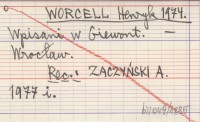 WORCELL Henryk 1974.
Wpisani w Giewont. —
Wrocław.
Rec.: ZACZYŃSKI A.
1977 r.